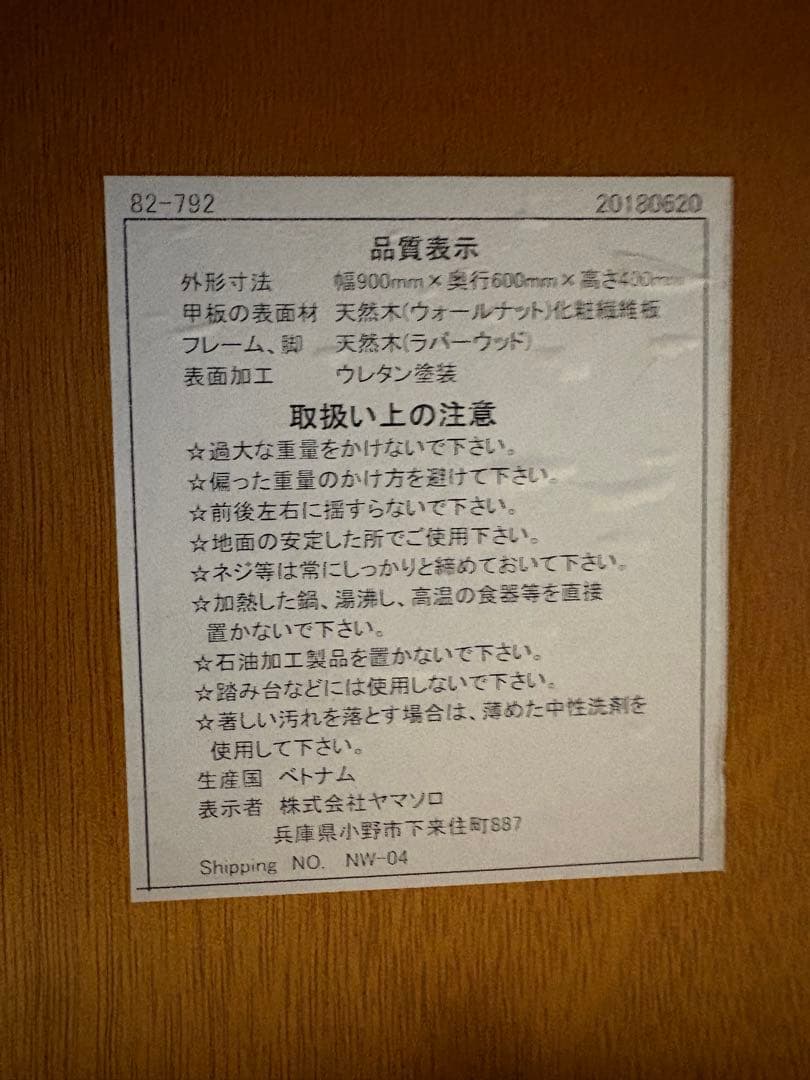 82-792 20180620
品質表示
外形寸法 幅900mm×奥行600mm×高さ400mm
甲板の表面材 天然木(ウォールナット)化粧繊維板
フレーム、脚 天然木(ラバーウッド)
表面加工 ウレタン塗装
取扱い上の注意
☆過大な重量をかけないで下さい。
☆偏った重量のかけ方を避けて下さい。
☆前後左右に揺すらないで下さい。
☆地面の安定した所でご使用下さい。
☆ネジ等は常にしっかりと締めておいて下さい。
☆加熱した鍋、湯沸し、高温の食器等を直接
置かないで下さい。
☆石油加工製品を置かないで下さい。
☆踏み台などには使用しないで下さい。
☆著しい汚れを落とす場合は、薄めた中性洗剤を
使用して下さい。
生産国 ベトナム
表示者 株式会社ヤマソロ
兵庫県小野市下来住町887
Shipping NO. NW-04